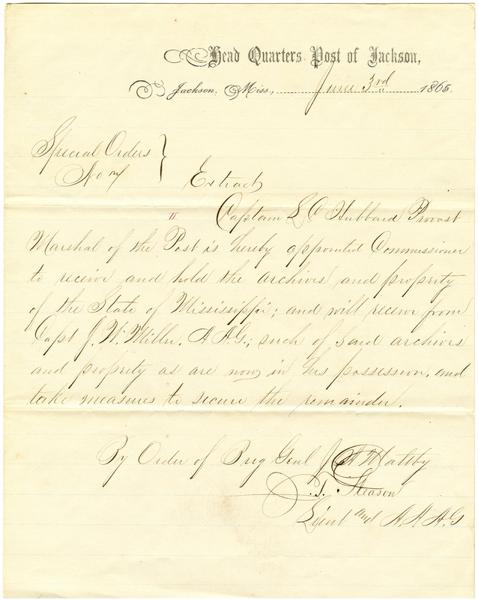 Head Quarters Post of Jackson,
Jackson, Miss., June 3rd 1865.
Special Orders
No
Extract
II
Captain L Hubbard Provost
Marshal of the Post is hereby appointed Commissioner
to receive and hold the archives and property
of the State of Mississippi; and will receive from
Capt J. W. Miller. A A G; such of said archives
and property as are now in his possession, and
take measures to secure the remainder.
By Order of Brig Genl J A Maltby
Gleason
Lieut and A. A. A. G